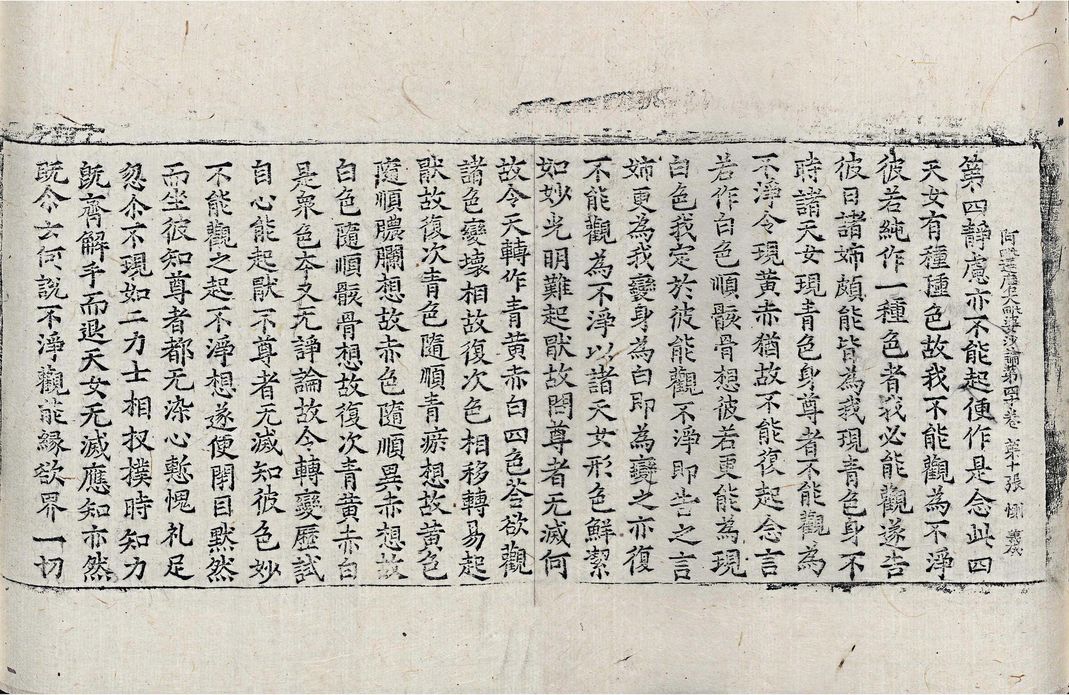 阿毗達磨大毗婆沙論第四十卷 第十張 惻 義成
第四静慮亦不能起便作是念此四
天女有種種色故我不能觀為不淨
彼若純作一種色者我必能觀遂告
彼曰諸姉頗能皆為我現青色身不
時諸天女現青色身尊者不能觀為
不淨令現黃赤猶故不能復起念言
若作白色順骸骨想彼若更能為現
白色我定於彼能觀不淨即告之言
姉更為我變身為白即為變之亦復
不能觀為不淨以諸天女形色鮮潔
如妙光明難起猒故問尊者无滅何
故令天轉作青黃赤白四色荅欲觀
諸色變壞相故復次色相移轉易起
猒故復次青色隨順青瘀想故黃色
隨順膿爛想故赤色隨順異赤想故
白色隨順骸骨想故復次青黃赤白
是衆色本又无諍論故令轉變歷試
自心能起猒不尊者无滅知彼色妙
不能觀之起不淨想遂便閇目默然
而坐彼知尊者都无染心慙愧礼足
忽尒不現如二力士相扠撲時知力
旣齊解手而退天女无滅應知亦然
旣尒云何說不淨觀能緣欲界一切